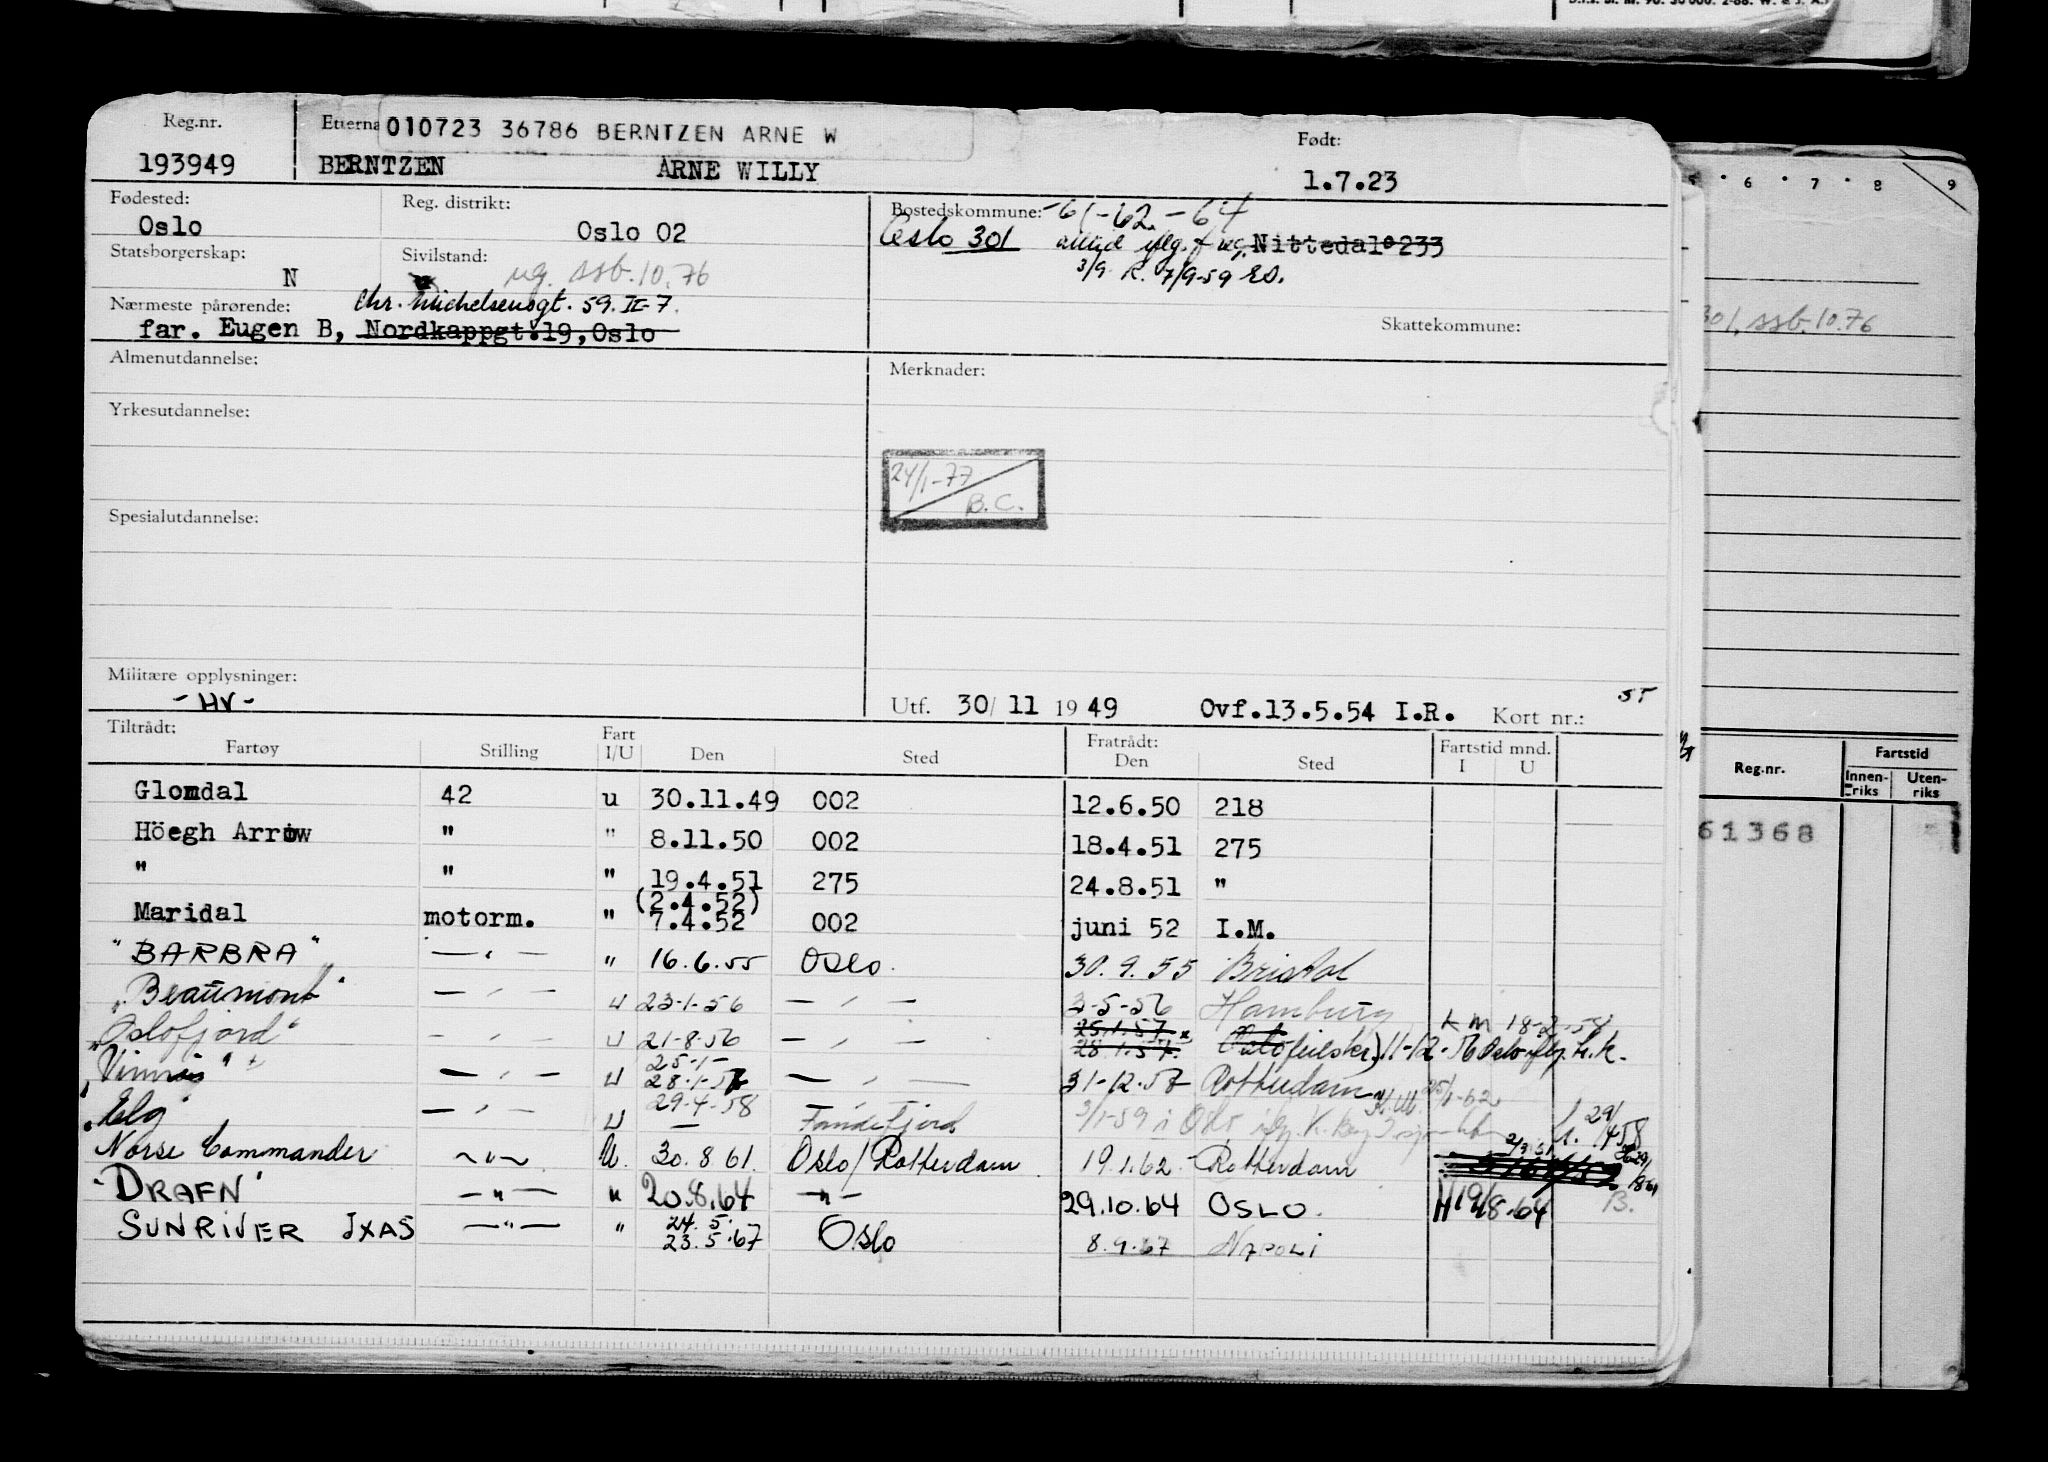 Reg.nr.
193949
Etterna
010723 36786 BERNTZEN ARNE W
BERNTZEN ARNE WILLY
Født:
1.7.23
Fødested:
Oslo
Reg. distrikt:
Oslo 02
Bostedskommune: -61-62.-64
Oslo 301
Nittedal 0233
3/9 R. 7/9-59
Statsborgerskap:
N
Sivilstand:
ug. ssb. 10.76
Nærmeste pårørende: Chr. Michelsensgt. 59. II-7.
far. Eugen B, Nordkappgt.19, Oslo
Skattekommune:
Almenutdannelse:
Merknader:
Yrkesutdannelse:
24/1-77
B.C.
Spesialutdannelse:
Militære opplysninger:
- HV -
Utf. 30/ 11 19 49 Ovf.13.5.54 I.R. Kort nr.:
Tiltrådt:
Fartøy Stilling Fart I/U Den Sted Fratrådt: Den Sted Fartstid mnd. I U
Glomdal 42 u 30.11.49 002 12.6.50 218
Höegh Arrow " " 8.11.50 002 18.4.51 275
" " " 19.4.51 275 24.8.51 "
(2.4.52)
Maridal motorm. " 7.4.52 002 juni 52 I.M.
"BARBRA" — " — " 16.6.55 Oslo. 30.9.55 Bristol
"Beaumont" — " — U 23-1-56 — " — 3-5-56 Hamburg
"Oslofjord" — " — U 21-8-56 — " — 25.1.57 28.1.57 11-12-56 Oslo
25-1-
— " — U 28-1-57 — " — 31-12-57 Rotterdam
"Elg" — " — U 29-4-58 3/1-59 i Oslo
Norse Commander — " — U. 30.8 61. Oslo/Rotterdam 19.1.62 - Rotterdam
"DRAFN" — " — " 20.8.64 — " — 29.10.64 OSLO. 19/8.64
SUNRIVER JXAS — " — " 24.5. 23.5.67 Oslo 8.9.67 NAPOLI
5 · 6 · 7 · 8 9
301, ssb. 10.76
Reg.nr. Fartstid
Innen-riks Uten-riks
61368